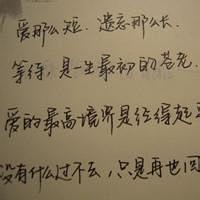 爱那么短、遗忘那么长.
等待，是一生最初的苍老.
爱的最高境界是经得起平
没有什么过不去，只是再也回